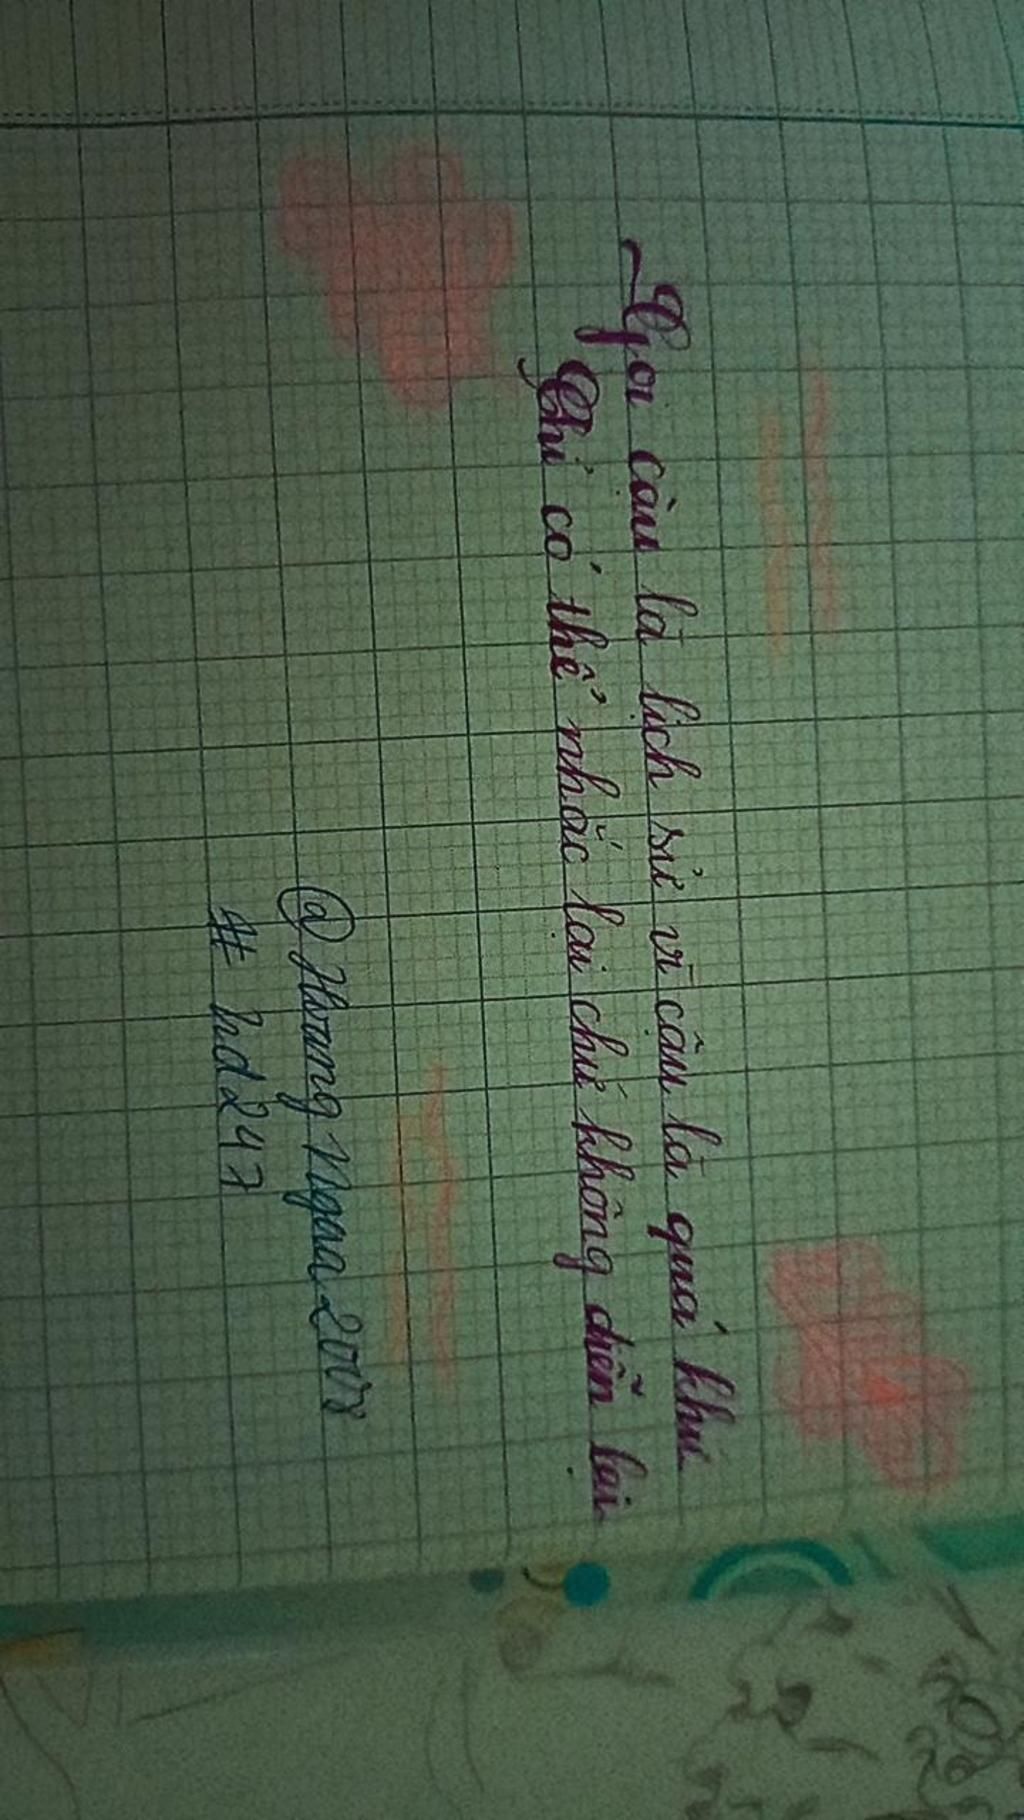 ~Gọi cậu là lịch sử vì cậu là quá khứ
Chỉ có thể nhắc lại chứ không diễn lại
@Hwang Ngan 2008
# hd247